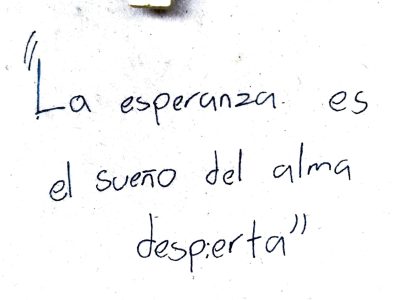 "La esperanza es
el sueño del alma
despierta"